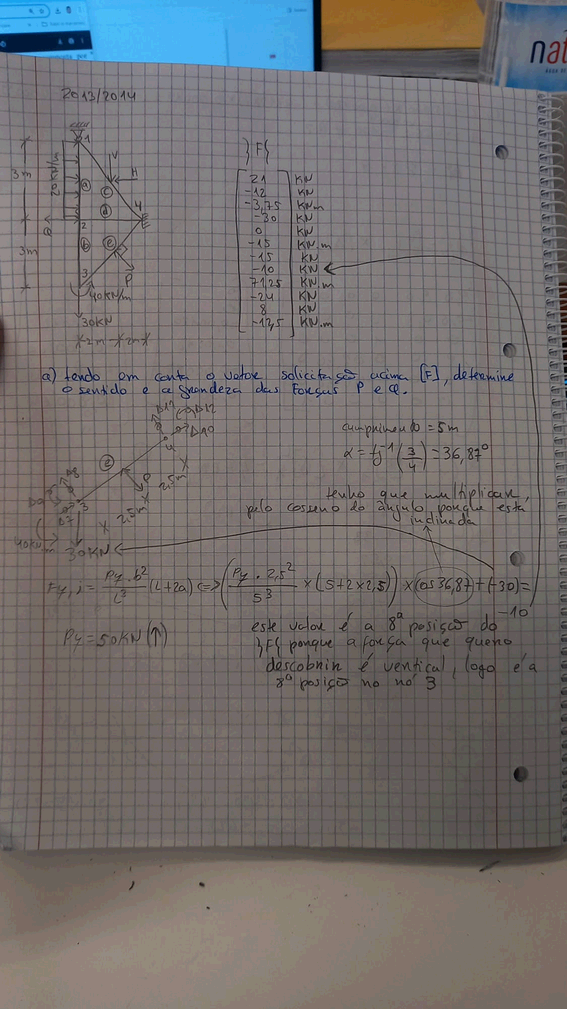 nat
2013/2014
1
V
H
3m
20 kN/m
a
c
d
4
2
Q
b
e
3m
3
P
40KN/m
30KN
2m
2m
}F{
21 KN
-12 KN
-3,75 KN.m
-30 KN
0 KN
-15 KN.m
-15 KN
-10 KN
71,25 KN.m
-24 KN
8 KN
-12,5 KN.m
a) tendo em conta o vetore solicitação acima [F], determine
o sentido e a grandeza das Forças P e Q.
Δ11
Δ12
Δ10
4
e
P
2,5m
2,5m
Δ8
Δ9
Δ7
3
40KN
m
30KN
cumprimento = 5m
α = tg⁻¹(3/4) = 36,87°
tenho que multiplicar
pelo cosseno do ângulo porque está
inclinada
Fy,i = Py.b²/L³ (L+2a) <=> (Py . 2,5²/5³ × (5+2×2,5)) × cos 36,87 + (-30) =
-10
Py = 50KN (↑)
este valor é a 8ª posição do
}F{ porque a força que quero
descobrir é vertical, logo é a
8ª posição no nó 3